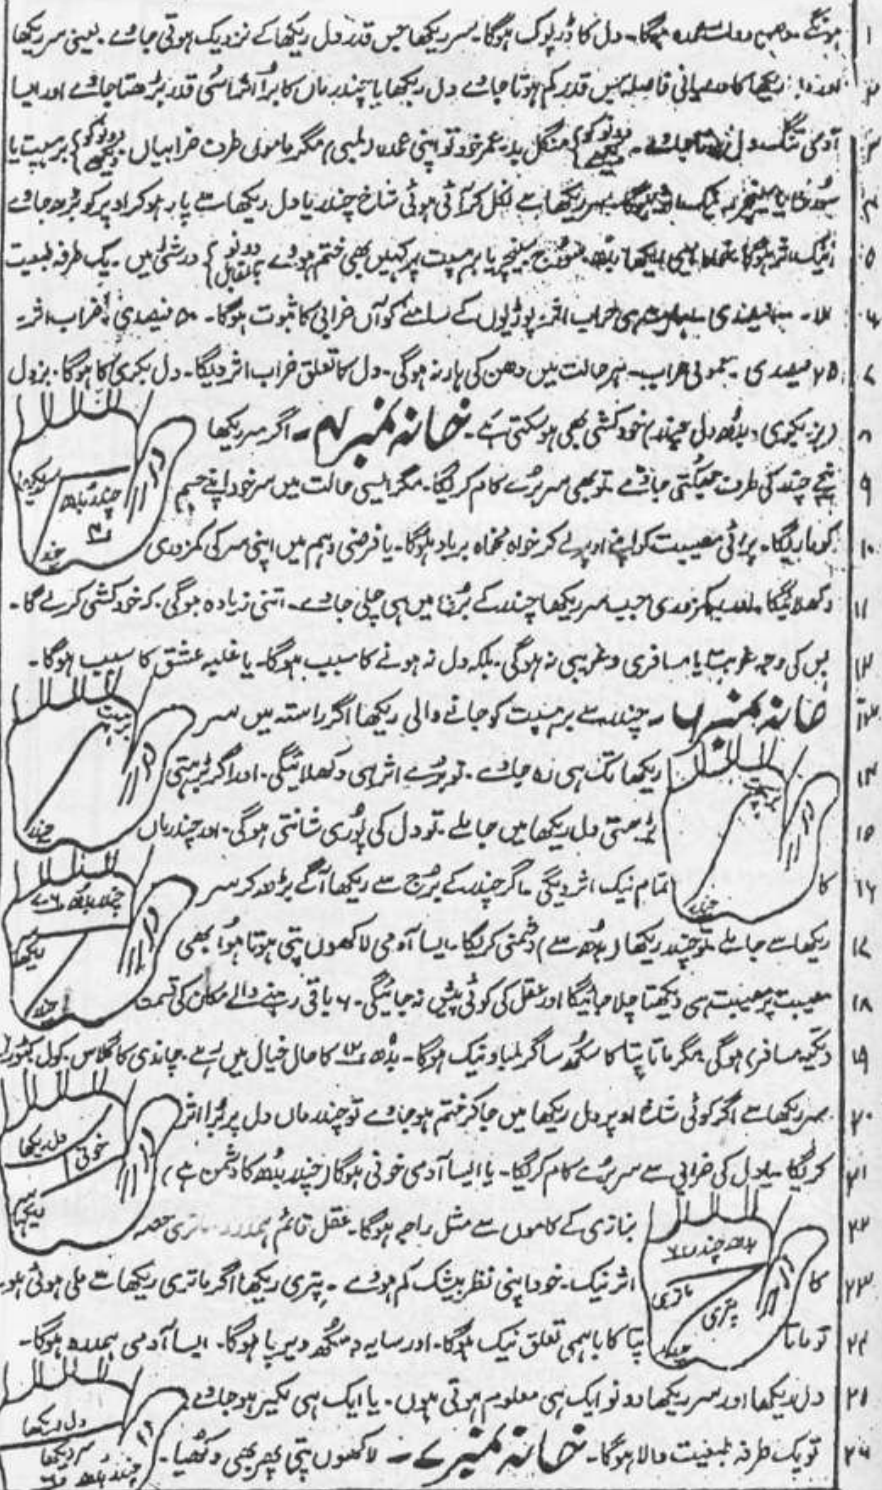 ۱ ہونگے۔ دل کا ڈرپوک ہوگا۔ سر ریکھا جس قدر دل ریکھا کے نزدیک ہوتی جاوے۔ یعنی سر ریکھا
۲ ریکھا کا درمیانی فاصلہ جس قدر کم ہوتا جاوے دل ریکھا یا چندر ماں کا بُرا اثر اسی قدر بڑھتا جاوے اور ایسا
۳ آدمی تنگ دل ہوتا جاوے۔ منگل بد۔ عمر خود تو اپنی عمدہ (لمبی) مگر ماموں طرف خرابیاں۔ (دونو کو دیکھے) برہسپت یا
۴ سورج یا سنیچر نیک ہوگا۔ سر ریکھا سے نکل کر آئی ہوئی شاخ چندر یا دل ریکھا سے پار ہو کر اوپر کو بڑھ جاوے
۵ نیک اثر ہوگا سورج سنیچر یا برہسپت پر کہیں بھی ختم ہووے (دونو بالمقابل) درشٹی میں۔ یک طرفہ طبیعت
۶ خراب اثر۔ پوڑیوں کے سامنے کوآں خرابی کا ثبوت ہوگا۔ ۵۰ فیصدی، خراب اثر۔
۷ ۲۵ فیصدی۔ معمولی خراب۔ ہر حالت میں دھن کی ہار نہ ہوگی۔ دل کا تعلق خراب اثر دیگا۔ دل بکری کا ہوگا۔ بزدل
۸ (بز۔ بکری) خودکشی بھی ہو سکتی ہے۔ خانہ نمبر ۴۔ اگر سر ریکھا
۹ نیچے چندر کی طرف جھکتی جاوے۔ تو بھی سر بُرے کام کریگا۔ مگر ایسی حالت میں سر خود اپنے جسم
سر ریکھا
چندر بدھ
۴
چندر
۱۰ کو ماریگا۔ پرائی مصیبت کو اپنے اوپر لے کر خواہ مخواہ برباد ہوگا۔ یا فرضی وہم میں اپنی سر کی کمزوری
۱۱ دکھلائیگا کمزوری جب سر ریکھا چندر کے بُرج میں ہی چلی جاوے۔ اتنی زیادہ ہوگی۔ کہ خودکشی کرلے گا۔
۱۲ جس کی وجہ غربت یا مسافری و غریبی نہ ہوگی۔ بلکہ دل نہ ہونے کا سبب ہوگا۔ یا غلبہ عشق کا سبب ہوگا۔
۱۳ خانہ نمبر ۶۔ چندر سے برہسپت کو جانے والی ریکھا اگر راستہ میں سر
برہسپت
چندر
۱۴ ریکھا تک ہی رہ جاوے۔ تو بُرے اثر ہی دکھلائیگی۔ اور اگر بڑھتی
برہسپت
چندر
۱۵ بڑھتی دل ریکھا میں جا ملے۔ تو دل کی پوری شانتی ہوگی۔ اور چندر ماں
۱۶ کا تمام نیک اثر دیگی۔ اگر چندر کے بُرج سے ریکھا آگے بڑھ کر سر
چندر بدھ ۶-۷
سر ریکھا
چندر
۱۷ ریکھا سے جا ملے تو چندر ریکھا (بدھ سے) دشمنی کریگا۔ ایسا آدمی لاکھوں پتی ہوتا ہوا بھی
۱۸ مصیبت پر مصیبت ہی دیکھتا چلا جائیگا اور عقل کی کوئی پیش نہ جائیگی۔ ۶ باقی رہنے والے مکان کی قسمت
۱۹ دیکھے مسافری ہوگی مگر ماتا پتا کا سُکھ ساگر لمبا و نیک ہوگا۔ بدھ ۱۲ کا حال خیال میں رہے۔ چاندی کا گلاس۔ کول کٹورا
۲۰ سر ریکھا سے اگر کوئی شاخ اوپر دل ریکھا میں جا کر ختم ہو جاوے تو چندر ماں دل پر بُرا اثر
دل ریکھا
خونی
سر ریکھا
۲۱ کریگا۔ یا دل کی خرابی سے سر بُرے کام کریگا۔ یا ایسا آدمی خونی ہوگا (چندر بدھ کا دشمن ہے)
۲۲ بزازی کے کاموں سے مثل راجہ ہوگا۔ عقل قائم ہمدرد۔ ماتری حصہ
بدھ چندر ۶
ماتری
پتری
چندر
۲۳ کا اثر نیک۔ خود اپنی نظر بیشک کم ہووے۔ پتری ریکھا اگر ماتری ریکھا سے ملی ہوئی ہو۔
۲۴ تو ماتا پتا کا باہمی تعلق نیک ہوگا۔ اور سایہ و سُکھ دیرپا ہوگا۔ ایسا آدمی ہمدرد ہوگا۔
۲۵ دل ریکھا اور سر ریکھا دونو ایک ہی معلوم ہوتی ہوں۔ یا ایک ہی لکیر ہو جاوے
دل ریکھا
سر ریکھا
چندر بدھ ۶
۲۶ تو یک طرفہ طبیعت والا ہوگا۔ خانہ نمبر ۷۔ لاکھوں پتی پھر بھی دُکھیا۔